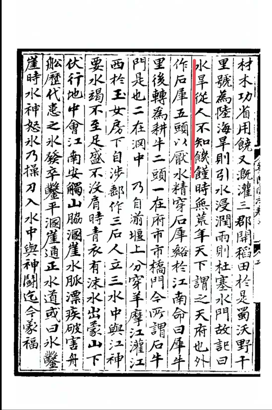 材木功省用饒又溉灌三郡開稻田於是蜀沃野千
里號為陸海旱則引水浸潤雨則杜塞水門故記曰
水旱從人不知饑饉時無荒年天下謂之天府也外
作石犀五頭以厭水精穿石犀谿於江南命曰犀牛
里後轉為耕牛二頭一在府市市橋門今所謂石牛
門是也二在淵中 乃自湔堰上分穿羊摩江灌江
西於玉女房下自涉郵作三石人立三水中與江神
要水竭不至足盛不沒肩時青衣有沫水出蒙山下
伏行地中會江南安觸山脇溷崖水脉漂疾破害舟
舩歷代患之氷發卒鑿平溷崖通正水道或曰氷鑿
崖時水神怒氷乃操刀入水中與神鬬迄今蒙福